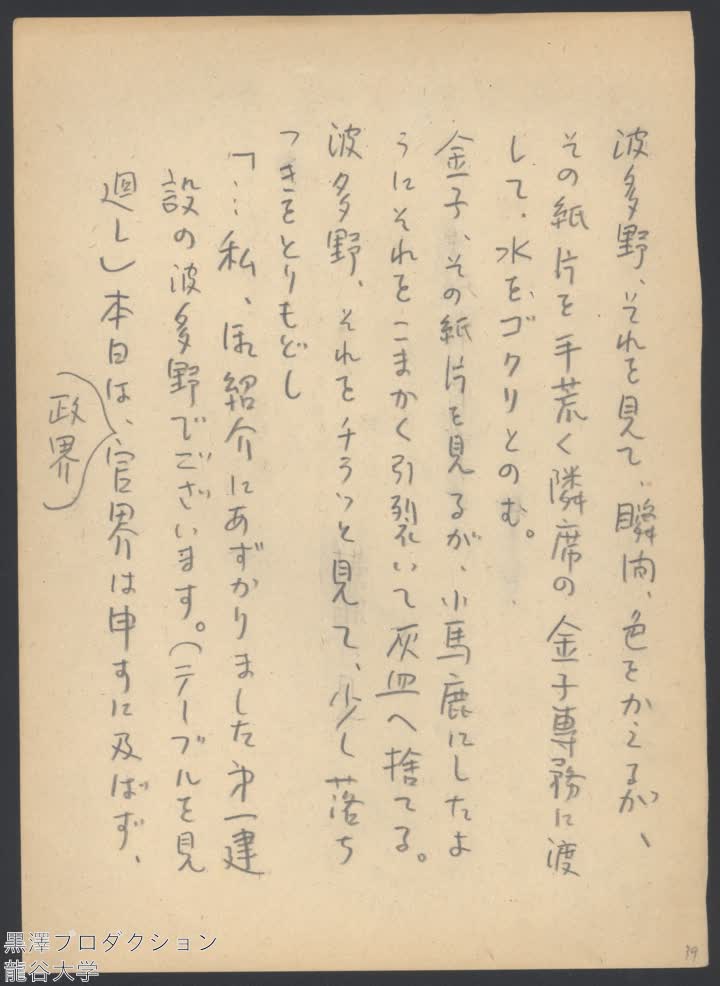 波多野、それを見て、瞬間、色をかえるが、
その紙片を手荒く隣席の金子専務に渡
して、水をゴクリとのむ。
金子、その紙片を見るが、小馬鹿にしたよ
うにそれをこまかく引裂いて灰皿へ捨てる。
波多野、それをチラッと見て、少し落ち
つきをとりもどし
「…私、御紹介にあずかりました第一建
設の波多野でございます。(テーブルを見
廻し)本日は、官界は申すに及ばず、
(政界)
39
黒澤プロダクション
龍谷大学